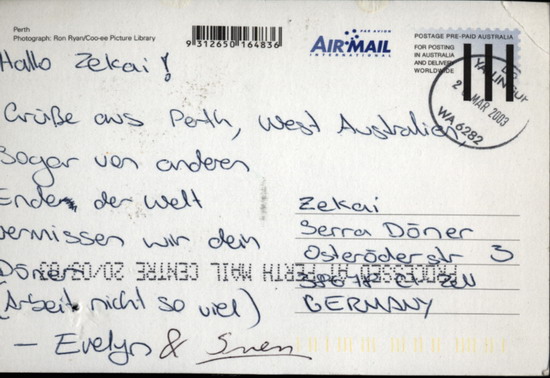 Perth
Photograph: Ron Ryan/Coo-ee Picture Library
9 312650 164836
AIR MAIL
PAR AVION
INTERNATIONAL
POSTAGE PRE-PAID AUSTRALIA
FOR POSTING
IN AUSTRALIA
AND DELIVERY
WORLDWIDE
MAR 2003
WA 6282
Hallo Zekai!
Grüße aus Perth, West Australien,
Sogar von anderen
Ende der Welt
vermissen wir dein
Döner
(Arbeit nicht so viel)
– Evelyn & Sven
Zekai
Serra Döner
Osteröder str 3
ZELL
GERMANY
PROCESSED AT PERTH MAIL CENTRE 20/03/03